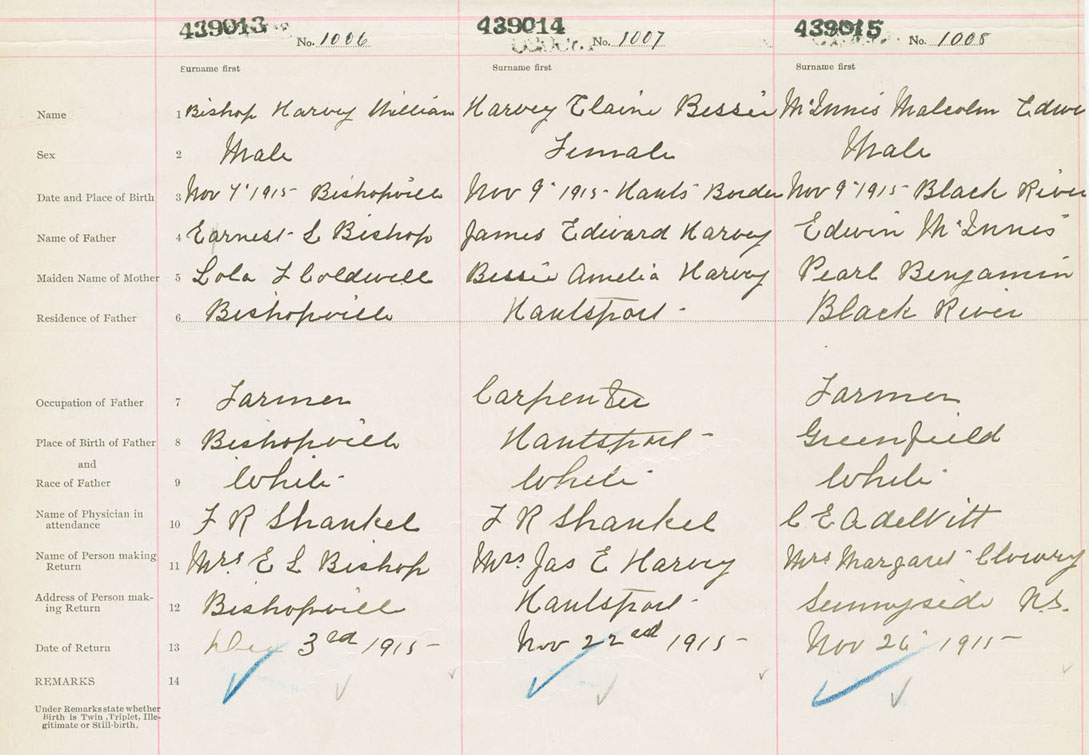 439013 439014 439015
No. 1006 No. 1007 No. 1008
Surname first Surname first Surname first
Name 1 Bishop Harvey William Harvey Elaine Bessie McInnis Malcolm Edwi
Sex 2 Male Female Male
Date and Place of Birth 3 Nov 7" 1915 - Bishopville Nov 9" 1915 - Hants Border Nov 9" 1915 - Black River
Name of Father 4 Earnest L Bishop James Edward Harvey Edwin McInnis
Maiden Name of Mother 5 Lola F Coldwell Bessie Amelia Harvey Pearl Benjamin
Residence of Father 6 Bishopville Hantsport - Black River
Occupation of Father 7 Farmer Carpenter Farmer
Place of Birth of Father 8 Bishopville Hantsport - Greenfield
and
Race of Father 9 White White White
Name of Physician in
attendance 10 F R Shankel F R Shankel C E A deWitt
Name of Person making
Return 11 Mrs E L Bishop Mrs. Jas E Harvey Mrs Margaret
Address of Person mak-
ing Return 12 Bishopville Hantsport - Sunnyside N.S.
Date of Return 13 Dec 3rd 1915 - Nov 22nd 1915 - Nov 26" 1915 -
REMARKS 14
Under Remarks state whether
Birth is Twin, Triplet, Ille-
gitimate or Still-birth.